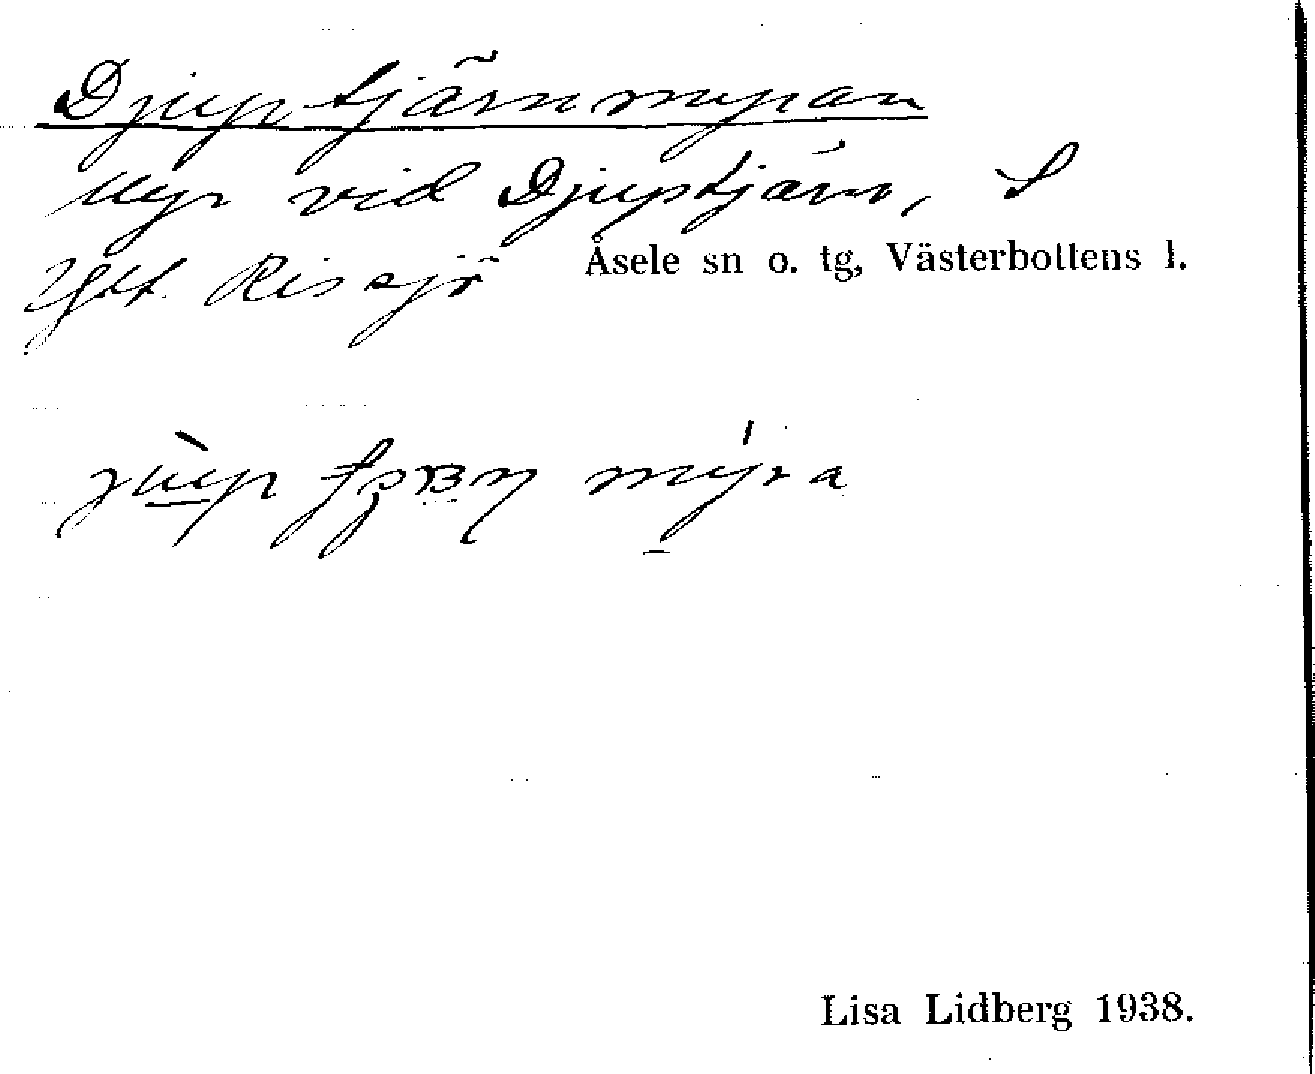 Djuptjärnmyran
Myr vid Djuptjärn, S
Ytt. Rissjö Åsele sn o. tg, Västerbottens l.
Lisa Lidberg 1938.